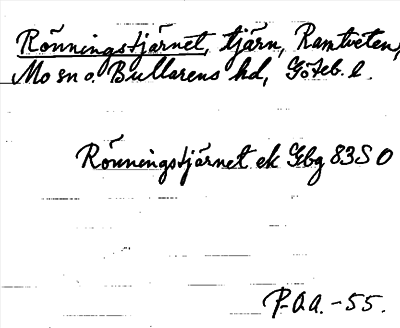 Rönningstjärnet, tjärn, Ramtveten,
Mo sn o. Bullarens hd, Göteb. l.
Rönningstjärnet ek Gbg 83S O
P. Aa. -55.